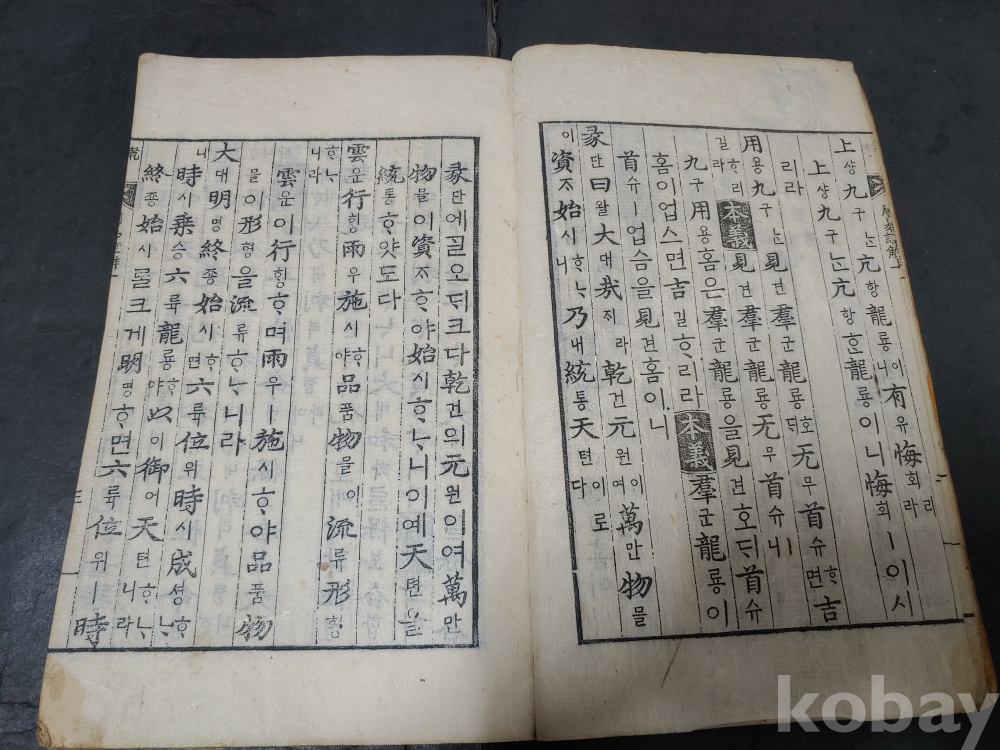 上샹九구는亢항龍룡이니有유悔회리라
上샹九구는亢항ᄒᆞᆫ龍룡이니悔회ㅣ이시
리라
用용九구는見견羣군龍룡호ᄃᆡ无무首슈ᄒᆞ면吉
길ᄒᆞ리라 本義 見견羣군龍룡无무首슈니
九구用용홈은羣군龍룡을見견호ᄃᆡ首슈ㅣ
업스면吉길ᄒᆞ리라 本義 羣군龍룡이
首슈ㅣ업슴을見견홈이니
彖단曰왈大대哉ᄌᆡ라乾건元원이여萬만物믈
이資ᄌᆞ始시ᄒᆞᄂᆞ니乃내統통天텬이로다
彖단에ᄀᆞᆯ오ᄃᆡ크다乾건의元원이여萬만
物믈이資ᄌᆞᄒᆞ야始시ᄒᆞᄂᆞ니이예天텬을
統통ᄒᆞ얏도다
雲운行ᄒᆡᆼ雨우施시ᄒᆞ야品품物믈이流류形형
ᄒᆞᄂᆞ니라
雲운이行ᄒᆡᆼᄒᆞ며雨우ㅣ施시ᄒᆞ야品품物
믈이形형을流류ᄒᆞᄂᆞ니라
大대明명終죵始시ᄒᆞ면六륙位위時시成셩ᄒᆞᄂᆞ
니時시乘승六륙龍룡ᄒᆞ야以이御어天텬ᄒᆞᄂᆞ니라
終죵始시ᄅᆞᆯ크게明명ᄒᆞ면六륙位위ㅣ時
周易諺解
乾
三
kobay